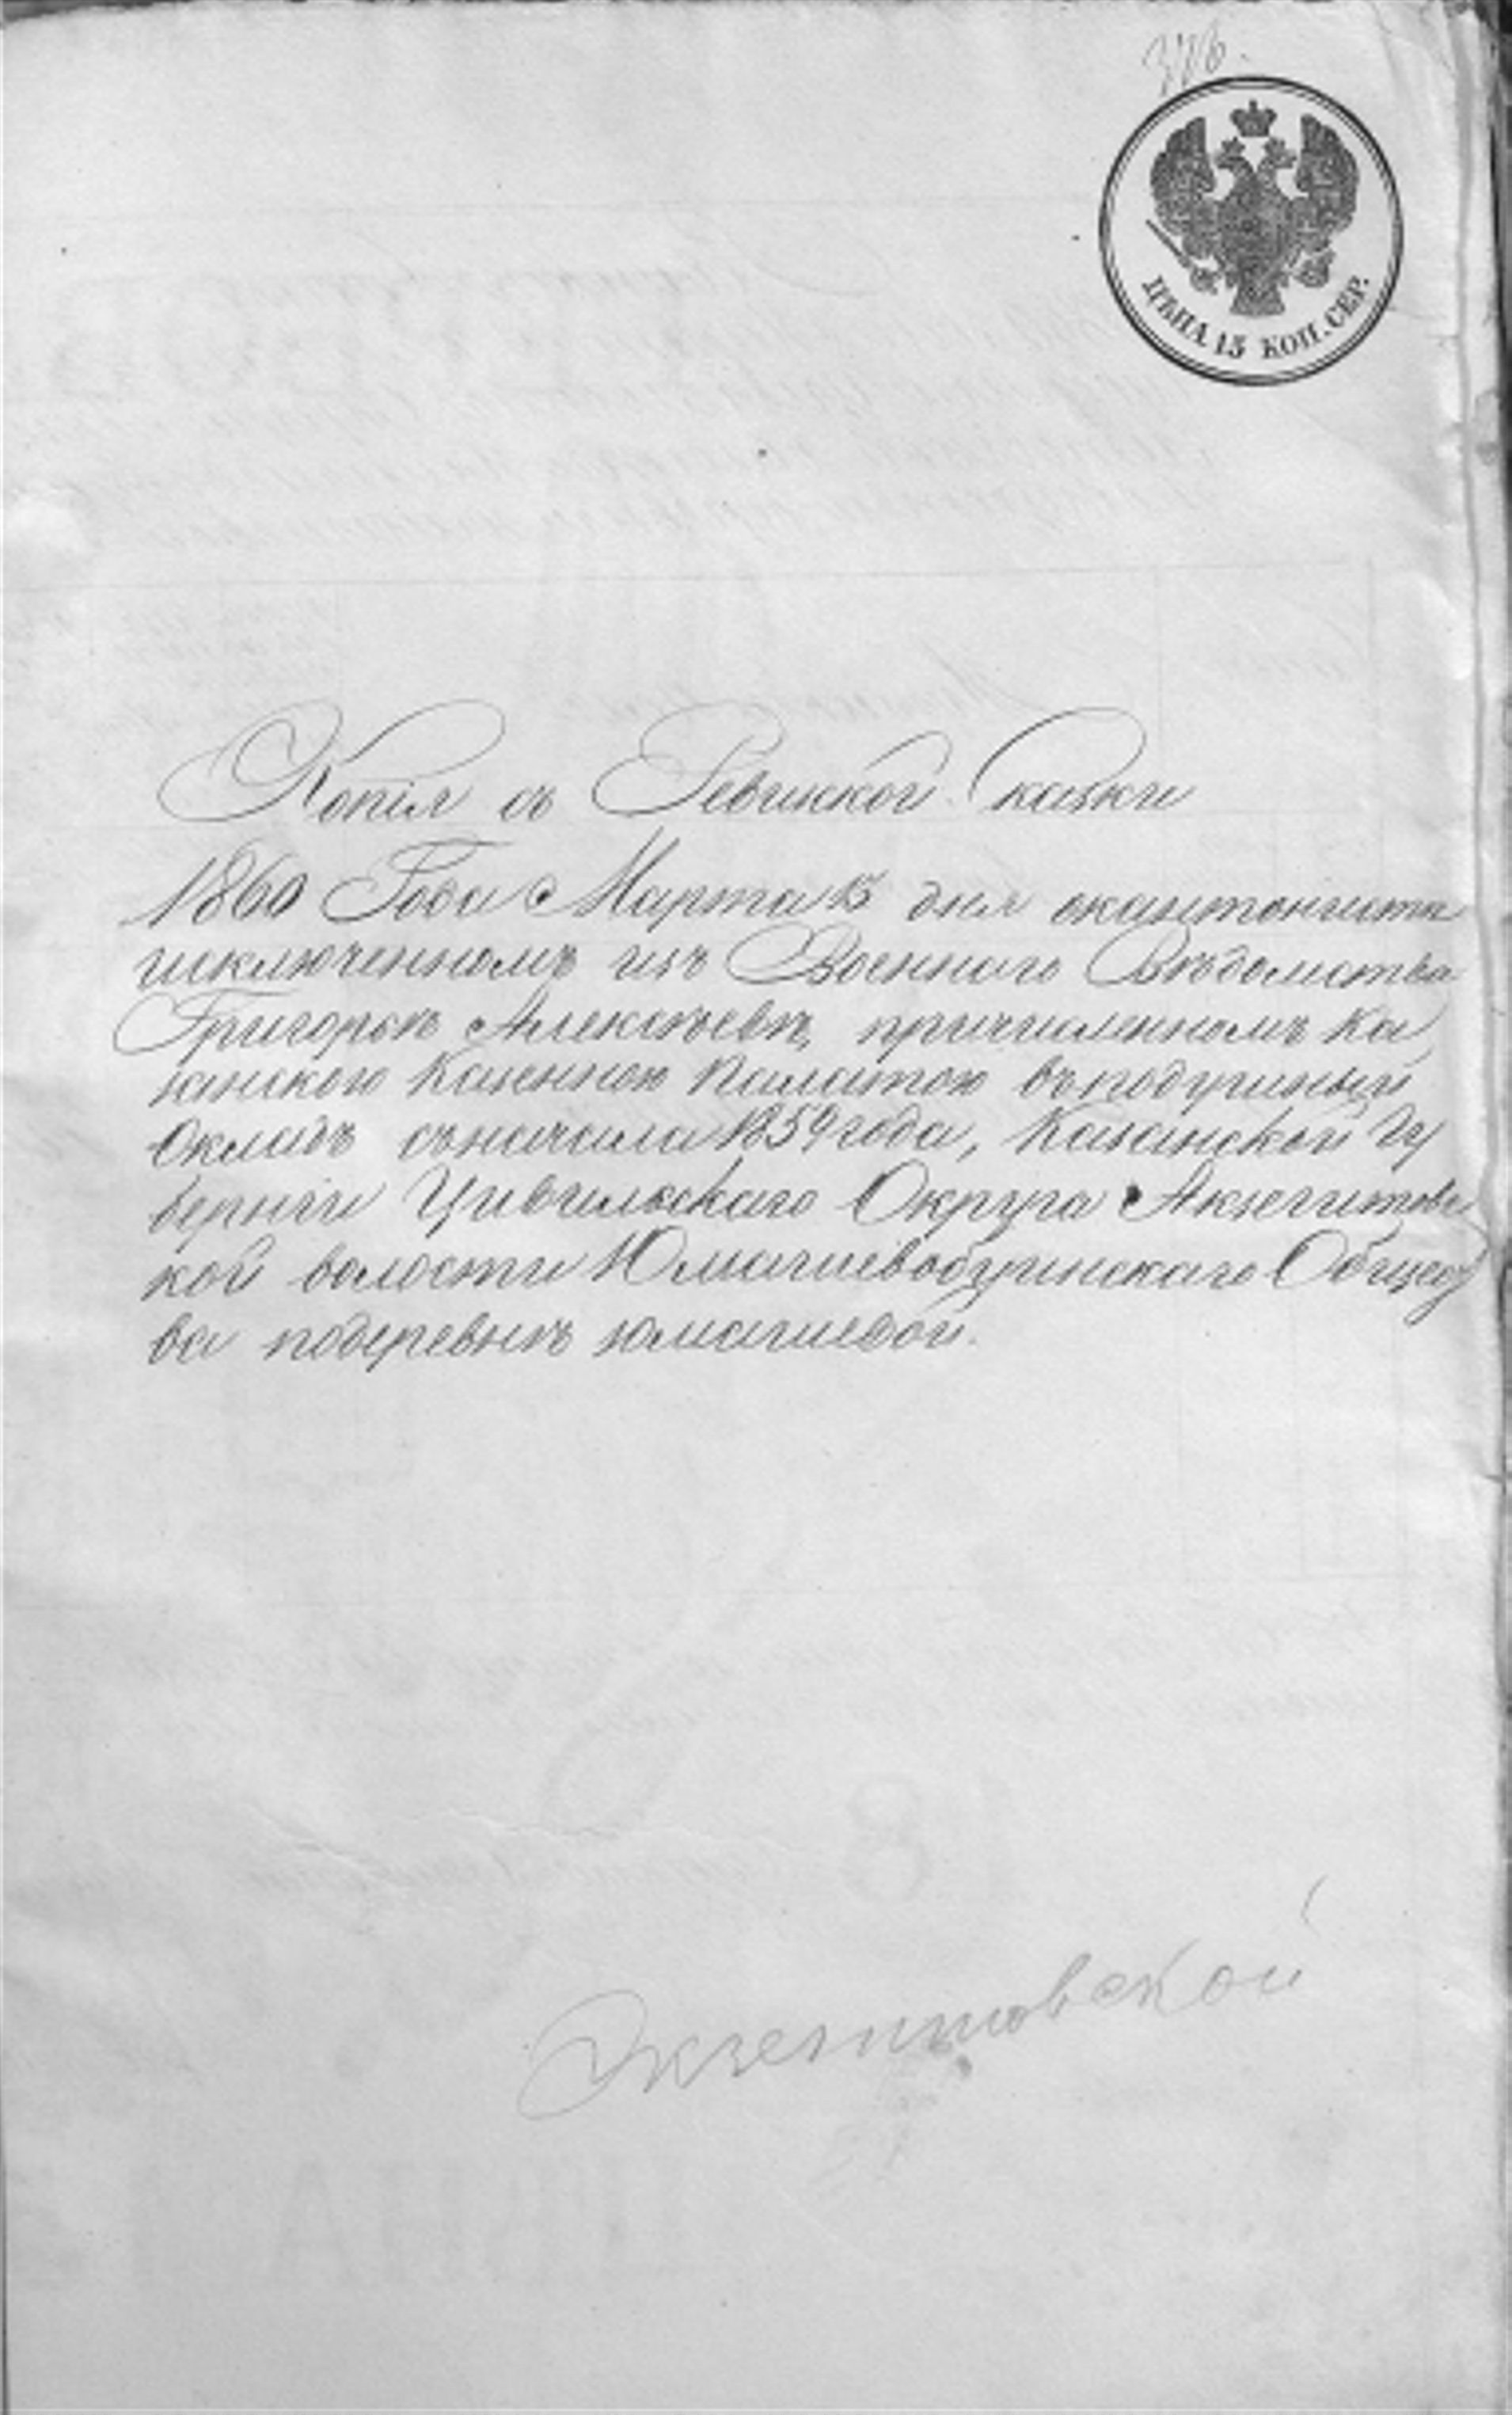 376.
ЦѢНА 15 КОП. СЕР.
Копія съ Ревиской Скаски
1860 Года Марта 15 дня окантонистѣ
исключенномъ изъ Военнаго Вѣдомства
Григорьѣ Алексѣевѣ, причисленномъ Ка
занскою Казенною Палатою въ подушный
Окладъ съ начала 1859 года, Казанской Гу
берніи Цивильскаго Округа Акзегитовс
кой волости Юмашевобуинскаго Общест
ва подеревнѣ Юмашевой.
Акзегитовской